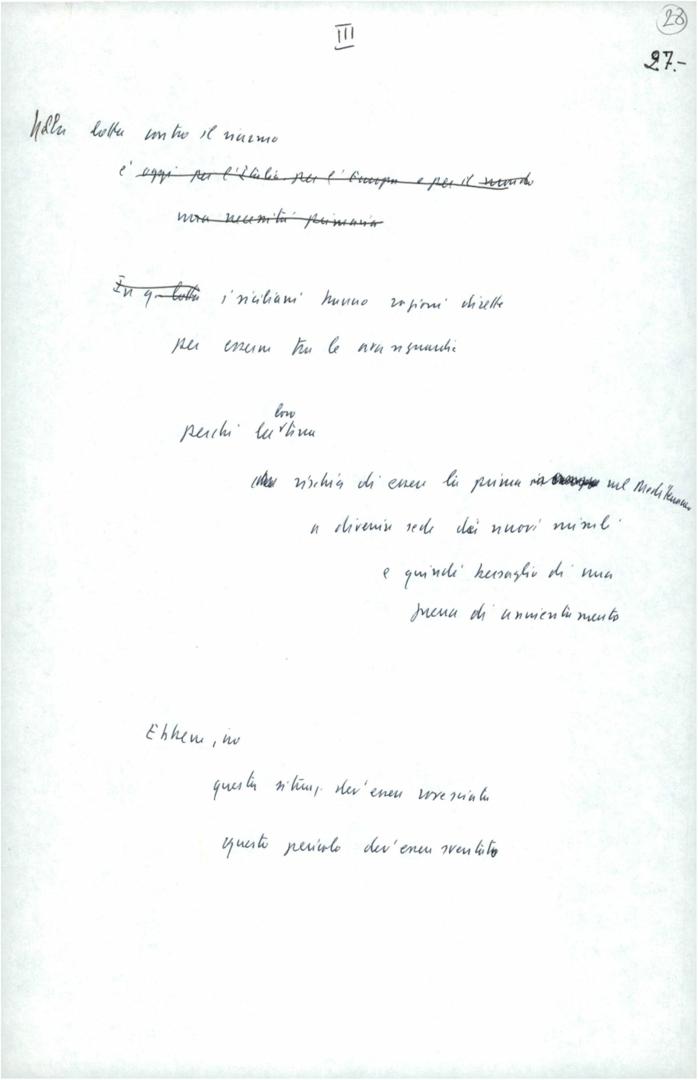 28
III
27.-
Nella lotta contro il riarmo
è oggi per l'Italia per l'Europa e per il mondo
una necessità primaria
In q. lotta i siciliani hanno ragioni dirette
per essere tra le avanguardie
loro
perché la terra
rischia di essere la prima nel Mediterraneo
a divenire sede dei nuovi missili
e quindi bersaglio di una
guerra di annientamento
Ebbene, no
questa situaz. dev'essere rovesciata
questo pericolo dev'essere sventato